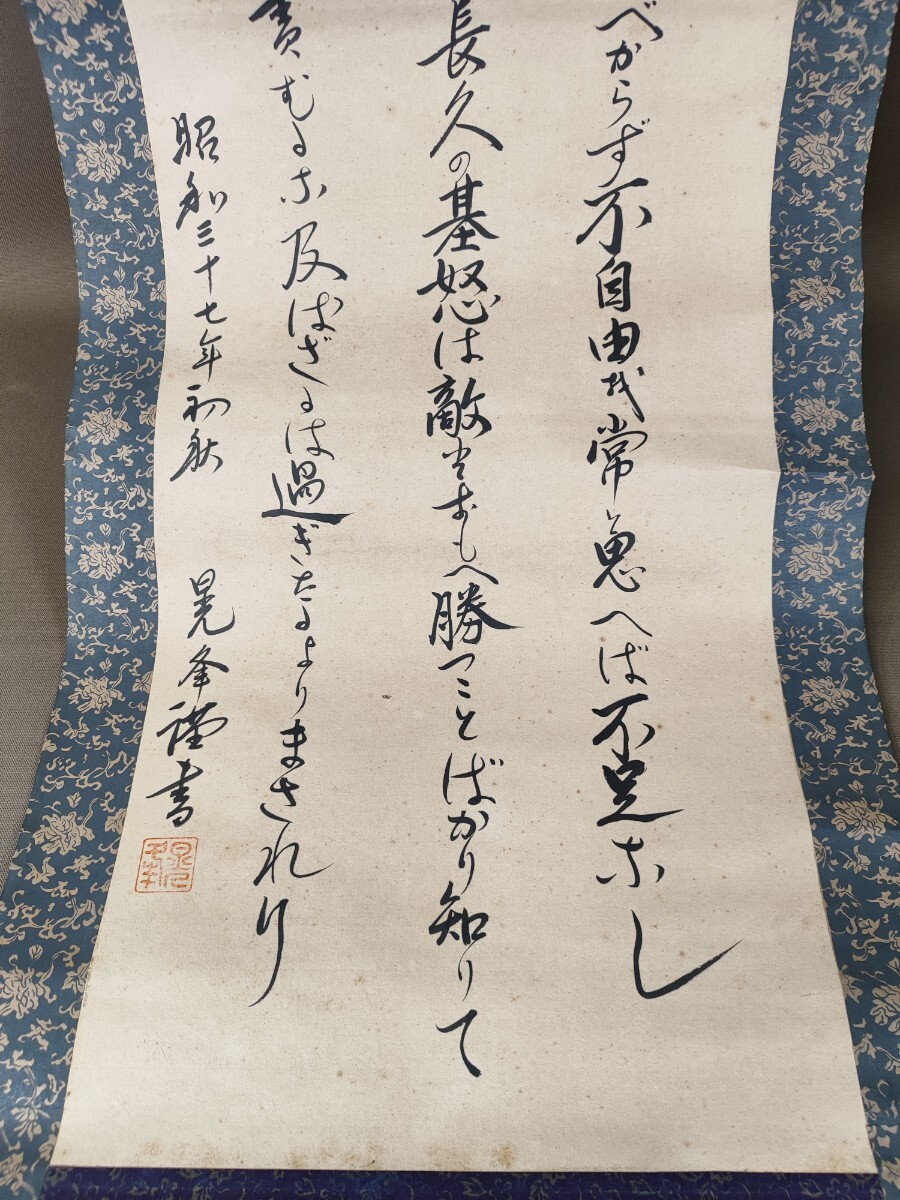 べからず不自由を常と思へば不足なし
長久の基怒は敵とおもへ勝つことばかり知りて
責むるな及ばざるは過ぎたるよりまされり
昭和三十七年初秋 晃峯謹書